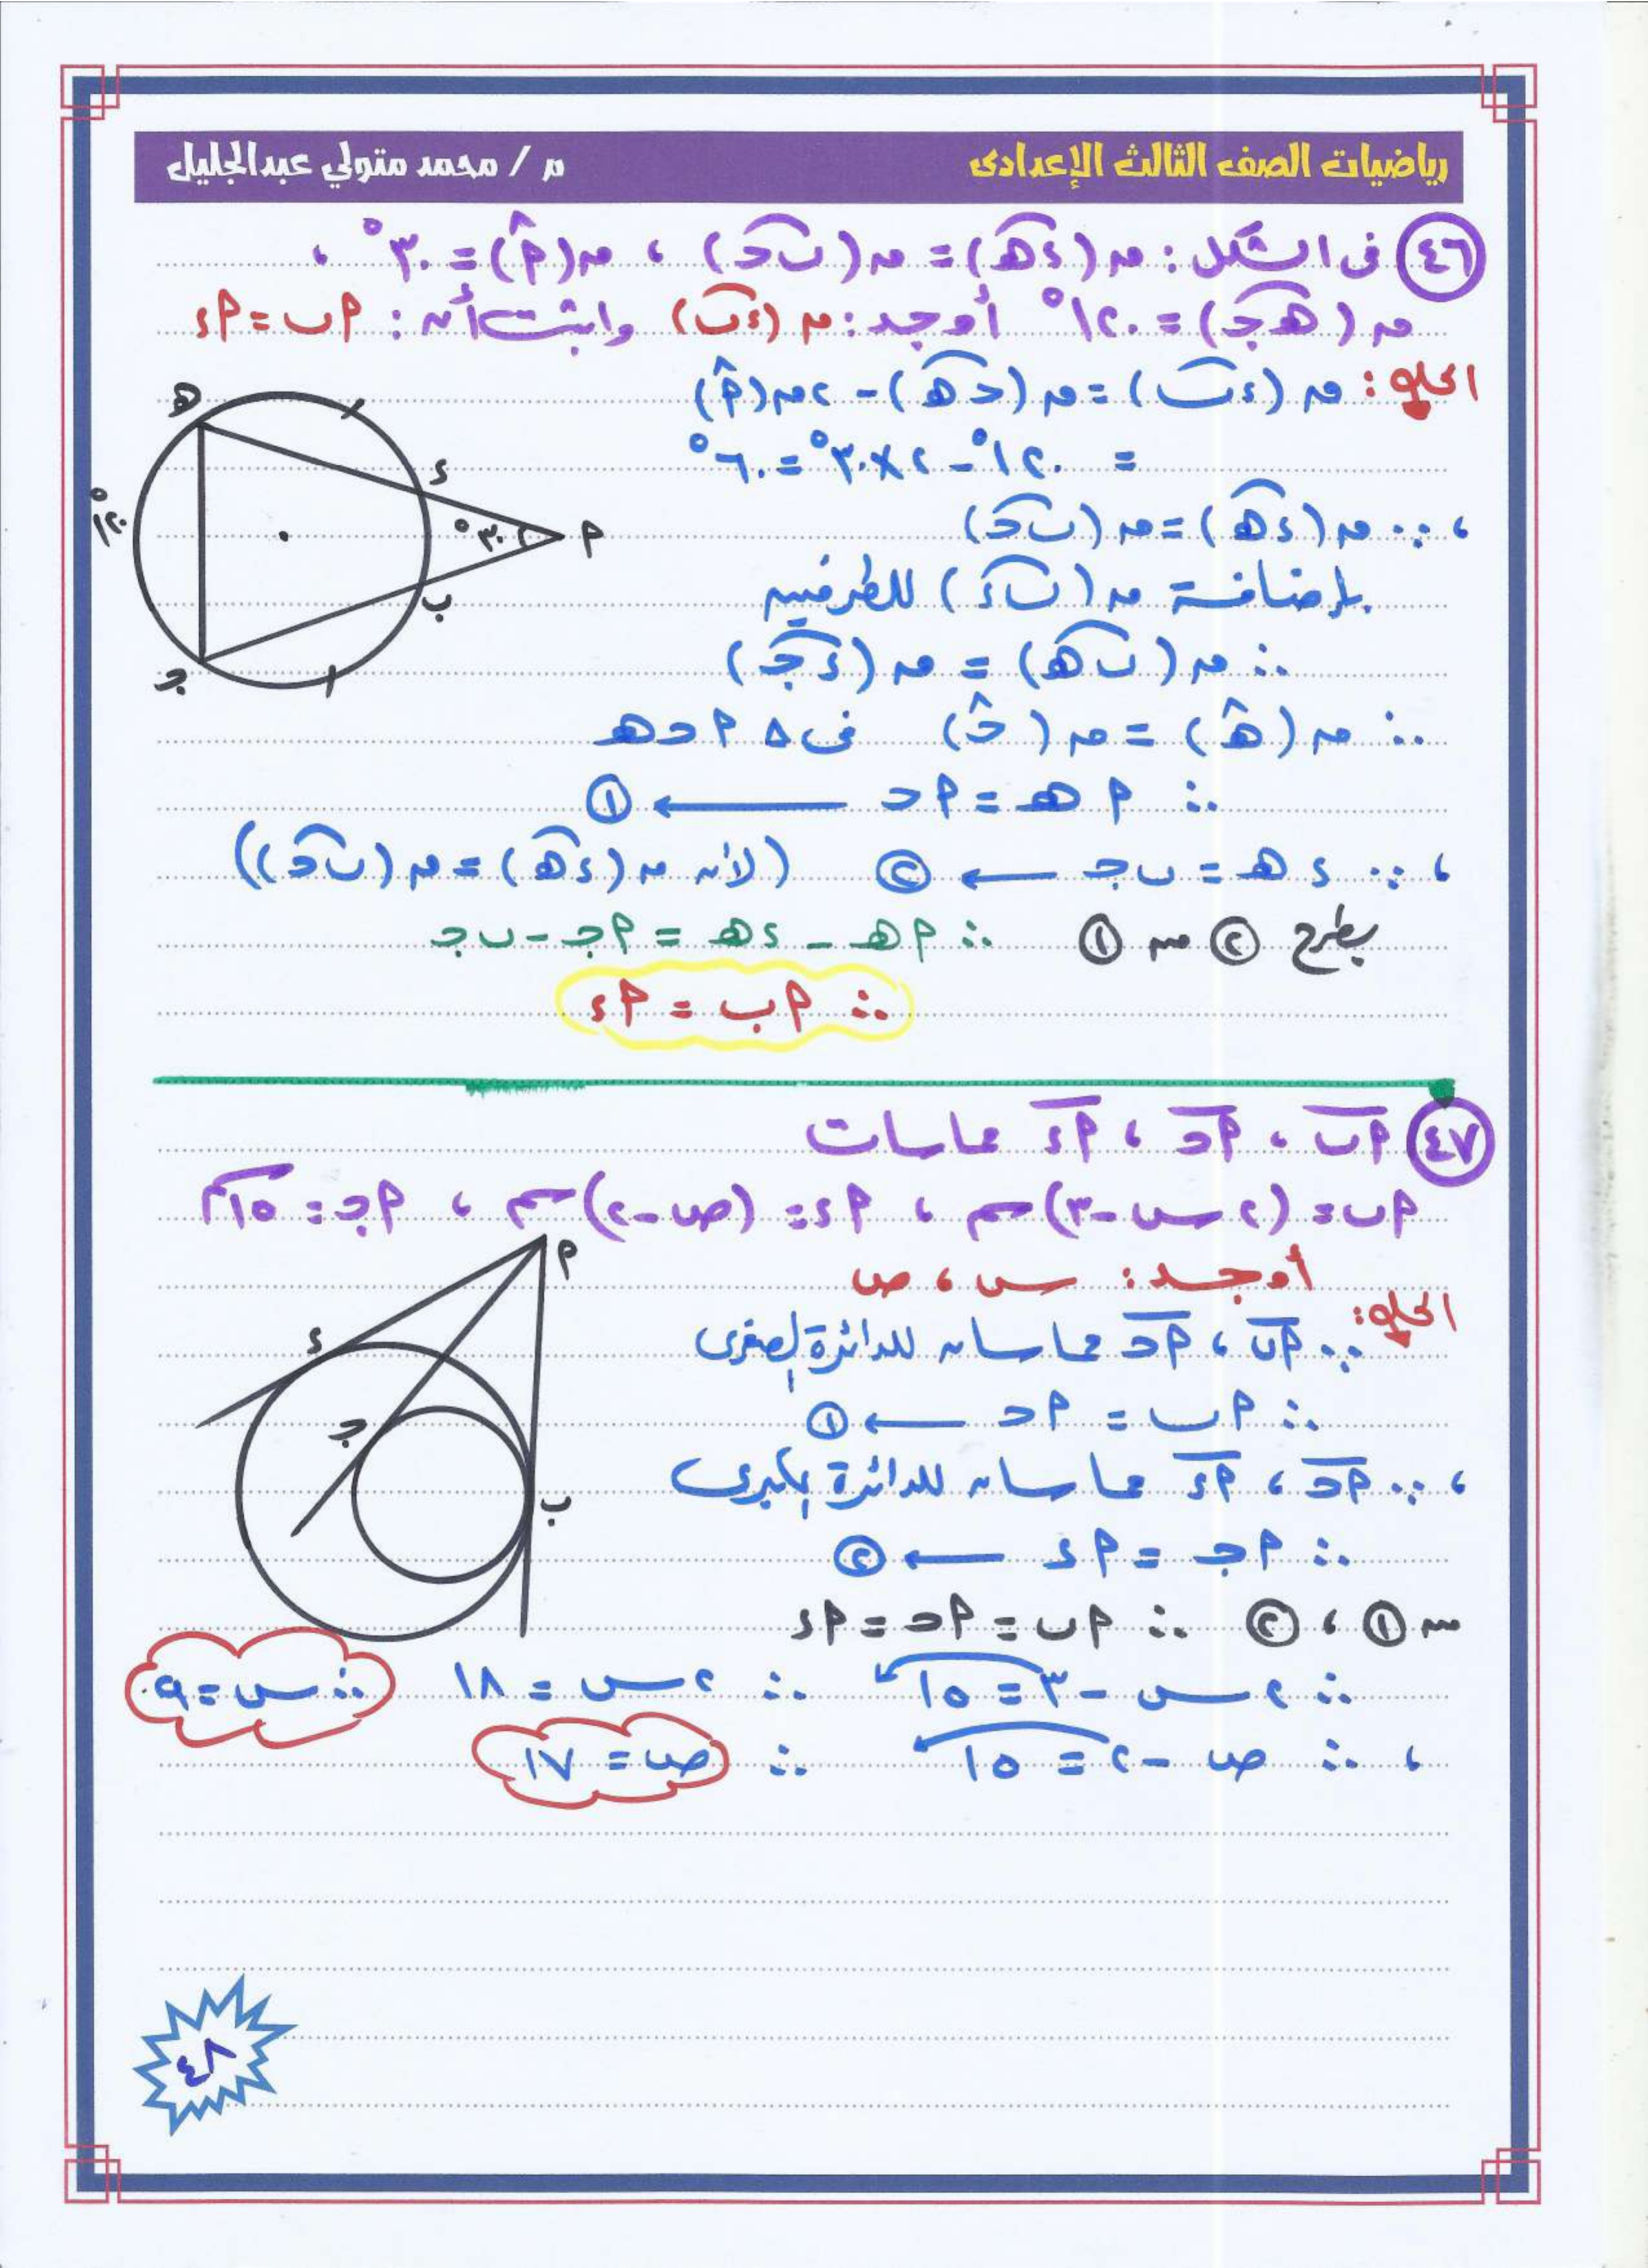 رياضيات الصف الثالث الإعدادى
م / محمد متولي عبدالجليل
٤٦ فى الشكل : ق(د ه) = ق(ب ح) ، ق(أ) = ٣٠° ،
ق(ه ج) = ١٢٠° أوجد : ق(د ب) واثبت أن : أب = أد
الحل : ق(د ب) = ق(ح ه) - ٢ ق(أ)
= ١٢٠° - ٢ × ٣٠° = ٦٠°
، ∵ ق(د ه) = ق(ب ح)
بإضافة ق(ب د) للطرفين
∴ ق(ب ه) = ق(د ج)
∴ ق(ه) = ق(ح) فى Δ أ ح ه
∴ أ ه = أ ح ← ١
، ∵ د ه = ب ج ← ٢ (لأن ق(د ه) = ق(ب ح))
بطرح ٢ من ١ ∴ أ ه - د ه = أ ج - ب ج
∴ أب = أد
ه
د
١٢٠°
٣٠°
أ
ب
ج
٤٧ أب ، أح ، أد مماسات
أب = (٢س - ٣) سم ، أد = (ص - ٢) سم ، أج = ١٥ سم
أوجد : س ، ص
الحل :
∵ أب ، أح مماسان للدائرة الصغرى
∴ أب = أح ← ١
، ∵ أح ، أد مماسان للدائرة الكبرى
∴ أج = أد ← ٢
من ١ ، ٢ ∴ أب = أح = أد
∴ ٢س - ٣ = ١٥ ∴ ٢س = ١٨ ∴ س = ٩
، ∴ ص - ٢ = ١٥ ∴ ص = ١٧
أ
د
ج
ب
٤٨